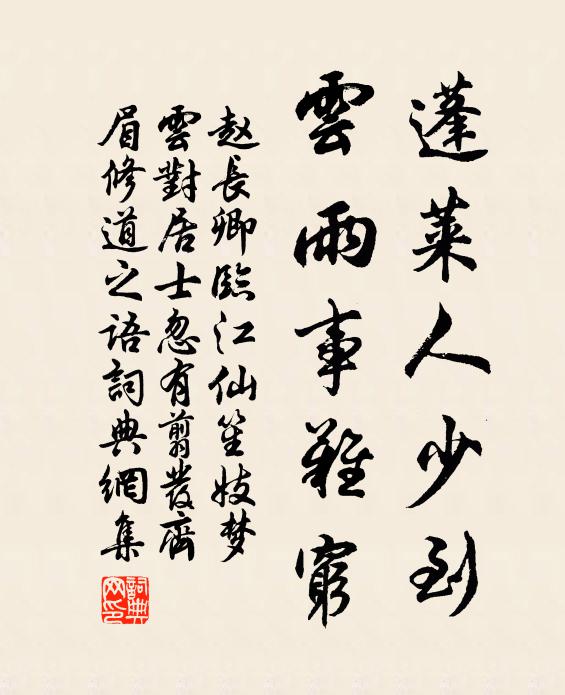 蓬萊人少到
雲雨事難窮
赵長卿臨江仙笙妓梦
雲對居士忽有翦發齊
眉修道之语詞典網集
詞典网印